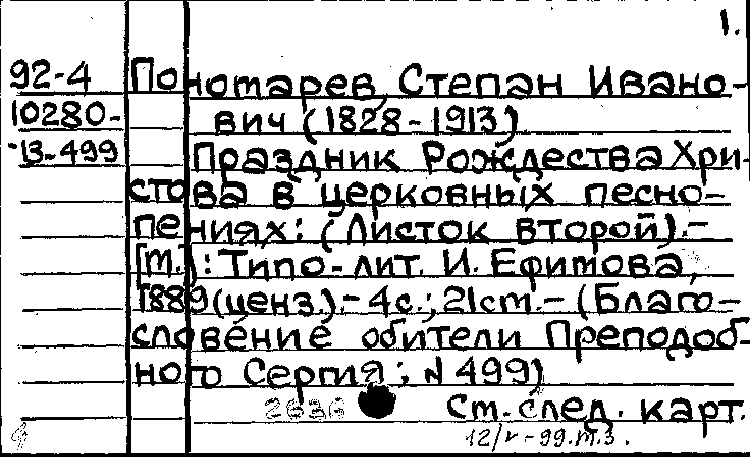 1.
92-4 Пономарев, Степан Ивано-
10280- вич (1828-1913)
13-499 Праздник Рождества Хри-
стова в церковных песно-
пениях: (Листок второй).-
[м.]: Типо-лит. И. Ефимова,
1889(ценз.).- 4с.; 21см.- (Благо-
словение обители Преподоб-
ного Сергия; N 499)
2636 См. след. карт.
12/v-99.м.3.